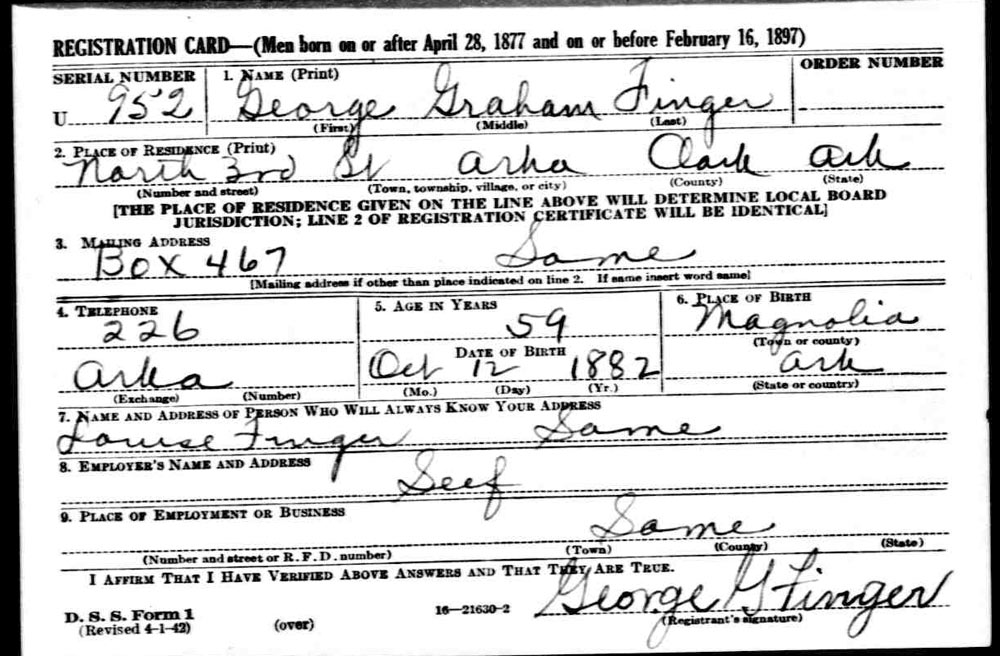 REGISTRATION CARD—(Men born on or after April 28, 1877 and on or before February 16, 1897)
SERIAL NUMBER 1. NAME (Print) ORDER NUMBER
U 952 George Graham Finger
(First) (Middle) (Last)
2. PLACE OF RESIDENCE (Print)
North 3rd St Arka Clark Ark
(Number and street) (Town, township, village, or city) (County) (State)
[THE PLACE OF RESIDENCE GIVEN ON THE LINE ABOVE WILL DETERMINE LOCAL BOARD
JURISDICTION; LINE 2 OF REGISTRATION CERTIFICATE WILL BE IDENTICAL]
3. MAILING ADDRESS
Box 467 Same
[Mailing address if other than place indicated on line 2. If same insert word same]
4. TELEPHONE 5. AGE IN YEARS 6. PLACE OF BIRTH
226 59 Magnolia
DATE OF BIRTH (Town or county)
Arka Oct 12 1882 Ark
(Exchange) (Number) (Mo.) (Day) (Yr.) (State or country)
7. NAME AND ADDRESS OF PERSON WHO WILL ALWAYS KNOW YOUR ADDRESS
Louise Finger Same
8. EMPLOYER'S NAME AND ADDRESS
Self
9. PLACE OF EMPLOYMENT OR BUSINESS
Same
(Number and street or R. F. D. number) (Town) (County) (State)
I AFFIRM THAT I HAVE VERIFIED ABOVE ANSWERS AND THAT THEY ARE TRUE.
George G Finger
D. S. S. Form 1 16—21630-2 (Registrant's signature)
(Revised 4-1-42) (over)